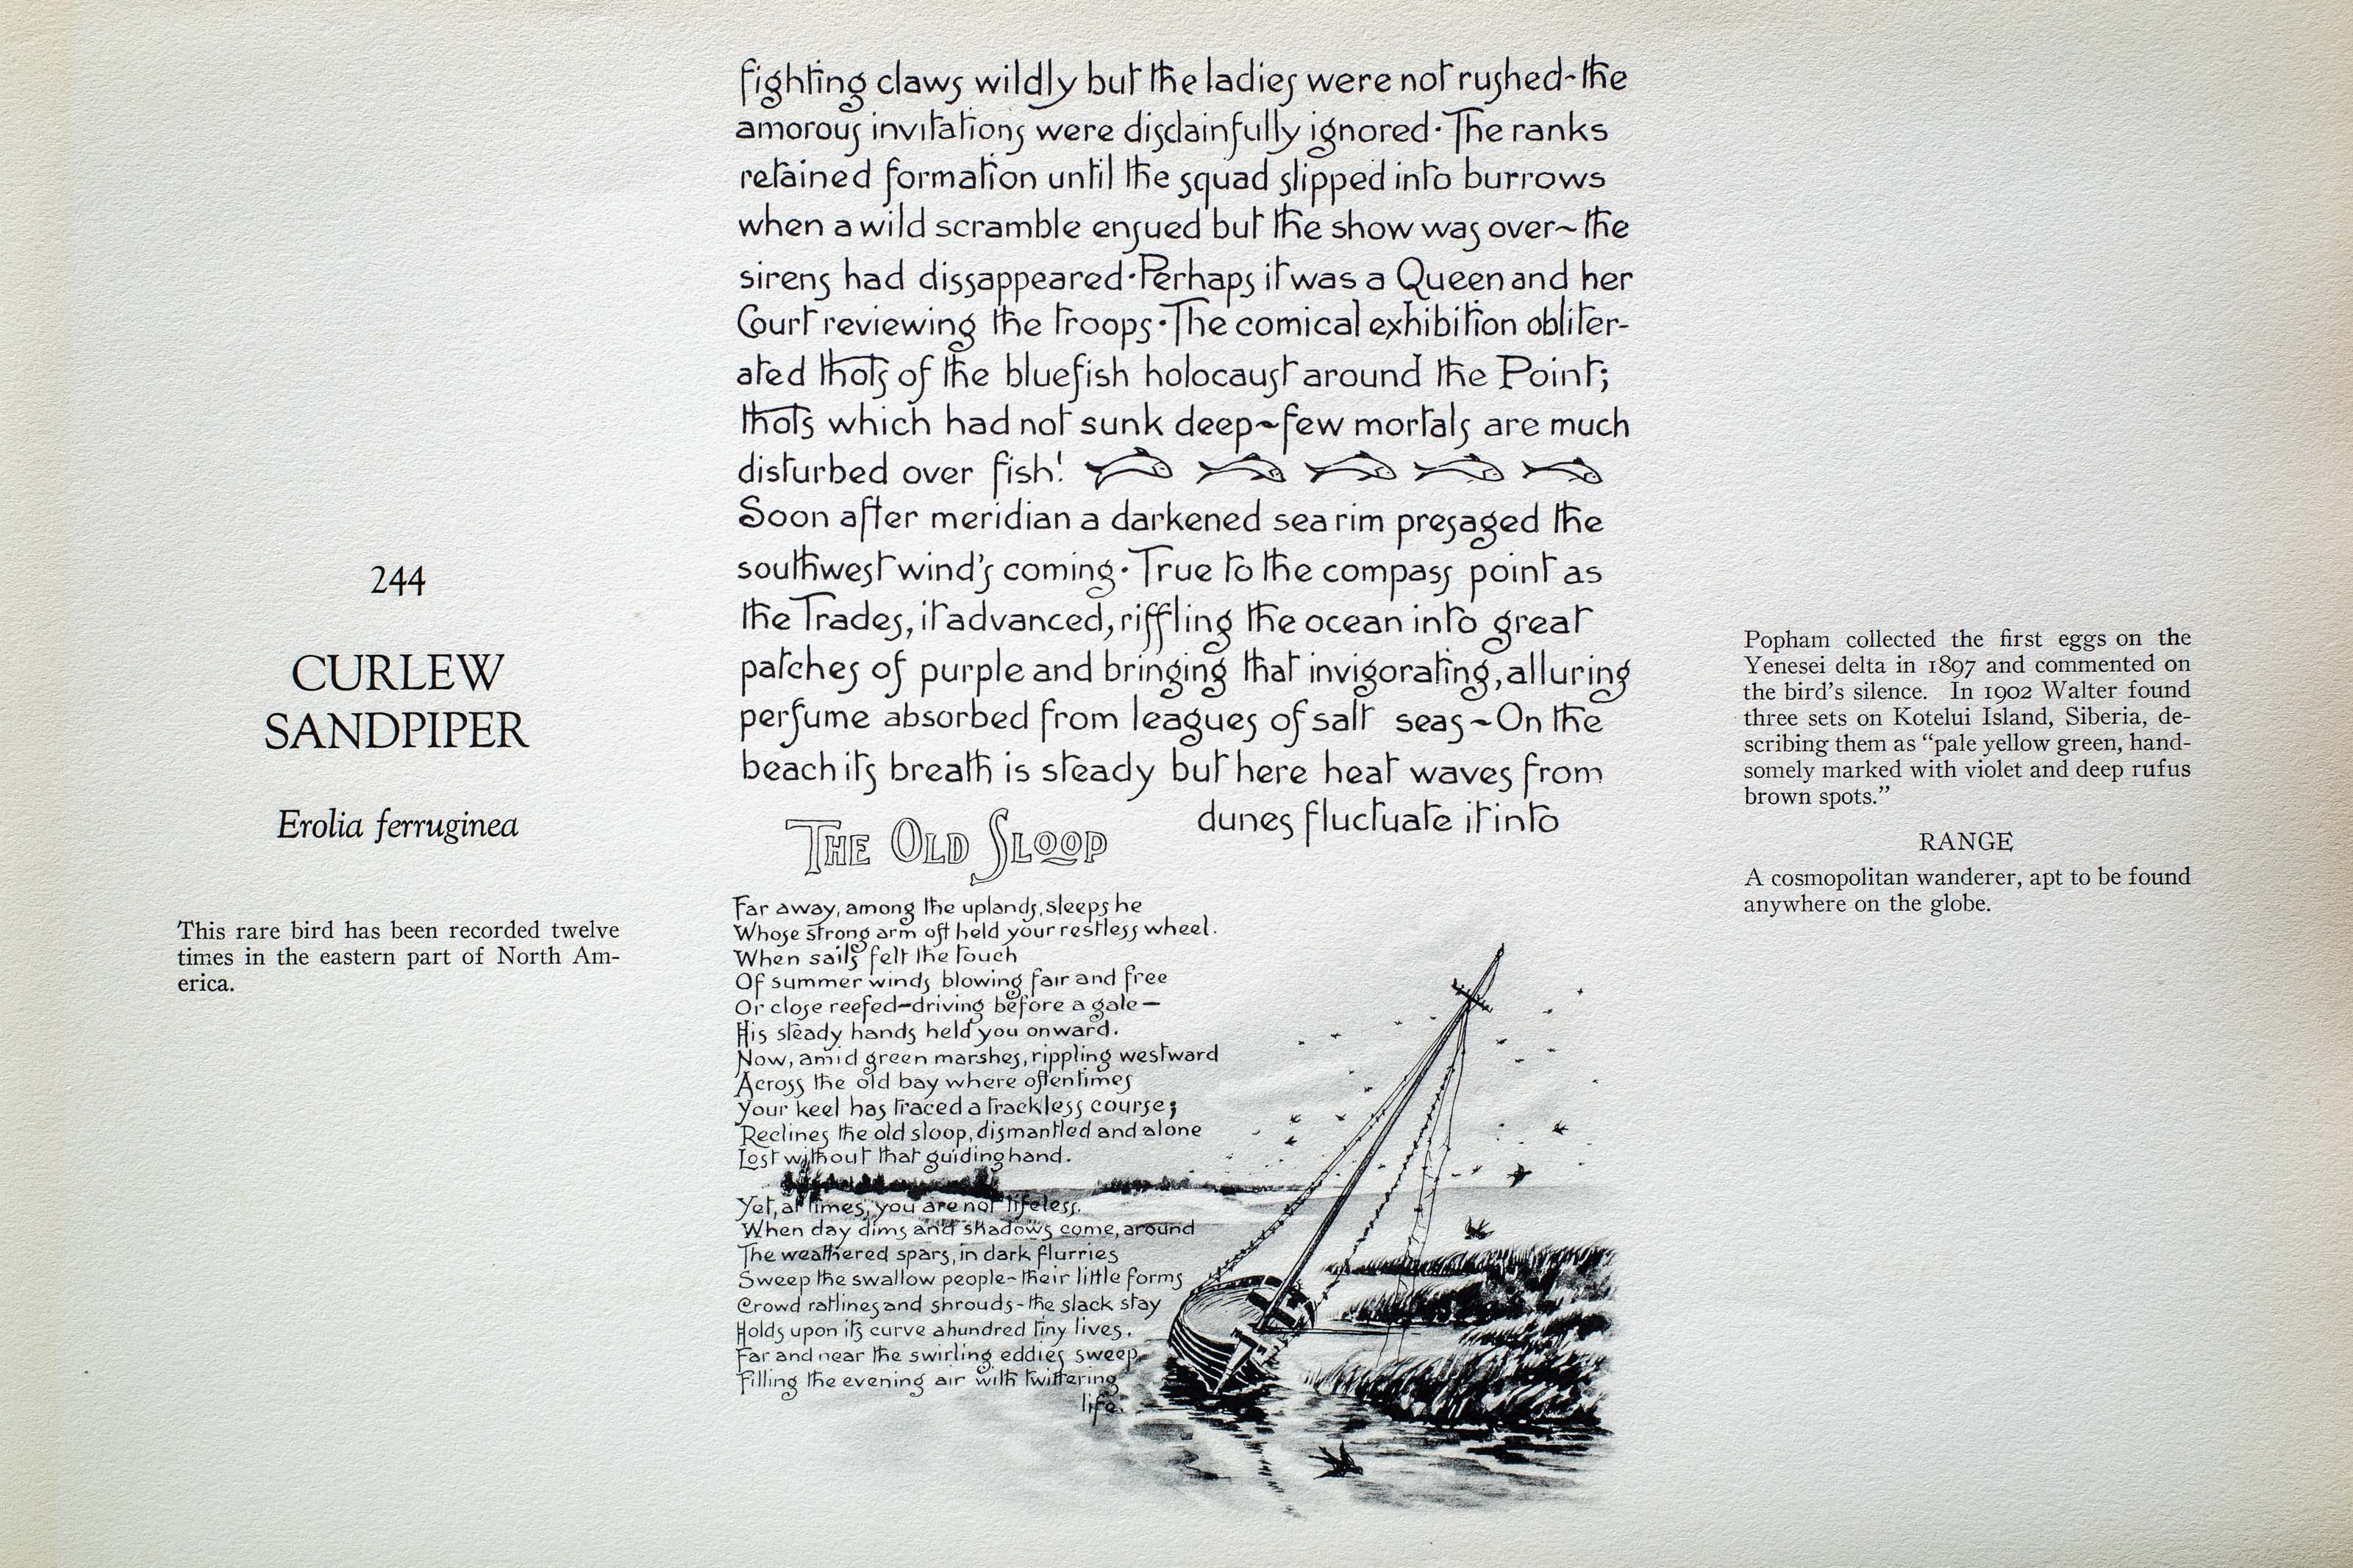 244
CURLEW
SANDPIPER
Erolia ferruginea
This rare bird has been recorded twelve
times in the eastern part of North Am-
erica.
fighting claws wildly but the ladies were not rushed~the
amorous invitations were disdainfully ignored·The ranks
retained formation until the squad slipped into burrows
when a wild scramble ensued but the show was over~the
sirens had dissappeared·Perhaps it was a Queen and her
Court reviewing the troops·The comical exhibition obliter-
ated thots of the bluefish holocaust around the Point;
thots which had not sunk deep~few mortals are much
disturbed over fish!
Soon after meridian a darkened sea rim presaged the
southwest wind's coming·True to the compass point as
the Trades, it advanced, riffling the ocean into great
patches of purple and bringing that invigorating, alluring
perfume absorbed from leagues of salt seas~On the
beach its breath is steady but here heat waves from
dunes fluctuate it into
THE OLD SLOOP
Far away, among the uplands, sleeps he
Whose strong arm oft held your restless wheel.
When sails felt the touch
Of summer winds blowing fair and free
Or close reefed-driving before a gale—
His steady hands held you onward.
Now, amid green marshes, rippling westward
Across the old bay where oftentimes
Your keel has traced a trackless course;
Reclines the old sloop, dismantled and alone
Lost without that guiding hand.
Yet, at times, you are not lifeless.
When day dims and shadows come, around
The weathered spars, in dark flurries
Sweep the swallow people-their little forms
Crowd ratlines and shrouds-the slack stay
Holds upon its curve a hundred tiny lives.
Far and near the swirling eddies sweep,
Filling the evening air with twittering
life.
Popham collected the first eggs on the
Yenesei delta in 1897 and commented on
the bird's silence. In 1902 Walter found
three sets on Kotelui Island, Siberia, de-
scribing them as "pale yellow green, hand-
somely marked with violet and deep rufus
brown spots."
RANGE
A cosmopolitan wanderer, apt to be found
anywhere on the globe.